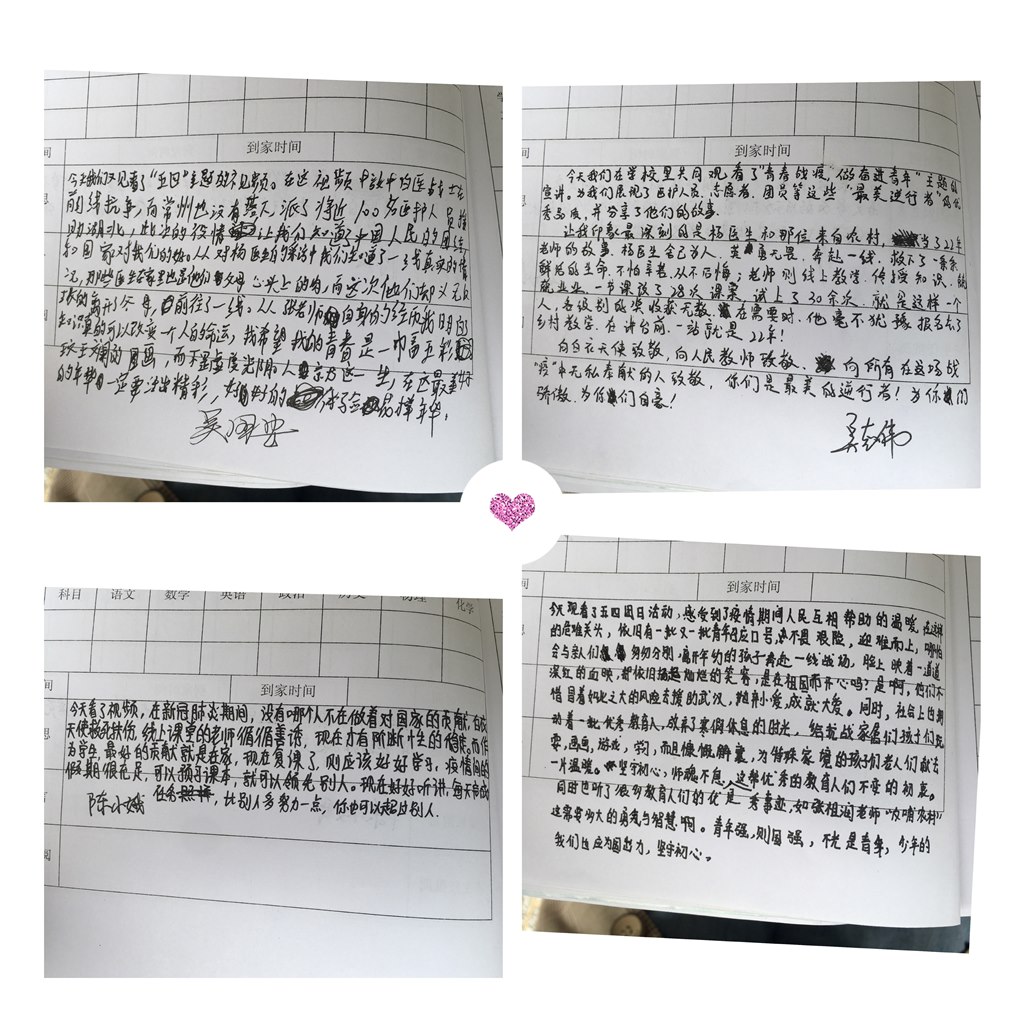 到家时间
今天我们又观看了"五四"主题的视频。在这视频中
前线抗争,而常州也没有落人,派了将近100名医护人员援
助湖北,此次的疫情让我们知道中国人民的团结
和国家对我们的好。从对杨医生的采访中我们知道了一线真实的情
况,
前往了一线。从张老师的自身的经历我明白
知识真的可以改变一个人的命运,我希望我的青春是一幅五彩
的图画,而不是虚度光阴,人一生,在这最美好
的年华一定要活出精彩,
到家时间
今天我们在学校里共同观看了"青春战疫,做奋进青年"主题的
宣讲。为我们展现了医护人员、志愿者、团员等这些"最美逆行者"的优
秀品质,并分享了他们的故事。
让我印象最深刻的是杨医生和那位来自农村,当了22年
老师的故事。杨医生舍己为人、英勇无畏、奔赴一线、救下了一条条
鲜活的生命,不怕辛苦,从不后悔;老师则线上教学、传授知识、兢
兢业业,一节课录了28次课案,试上了30余次,就是这样一个
人,各级别的奖收获无数,在需要时,他毫不犹豫报名去了
乡村教学,在讲台前,一站就是22年!
向白衣天使致敬,向人民教师致敬,向所有在这场战
"疫"中无私奉献的人致敬,你们是最美的逆行者!为你们
骄傲,为你们自豪!
吴志伟
科目 语文 数学 英语 政治 历史 物理 化学
到家时间
今天看了视频,在新冠肺炎期间,没有哪个人不在做着对国家的贡献,白衣
天使救死扶伤,线上课堂的老师循循善诱,现在才有阶断性的稳健,而作
为学生,最好的贡献就是在家,现在复课了,则应该好好学习,疫情期间的
假期很充足,可以预习课本,就可以领先别人。现在好好听讲,每天完成
任务,比别人多努力一点,你也可以超过别人.
陈小娥
到家时间
今天观看了五四团日活动,感受到了疫情期间人民互相帮助的温暖,在这样
的危难关头,依旧有一批又一批青年响应口号,不畏艰险,迎难而上,哪怕
会与亲人们分别,离开年幼的孩子奔赴一线战场,脸上映着一道道
深红的面映,却依旧扬起灿烂的笑容,是在祖国而开心吗?是啊,他们不
惜冒着如此之大的风险去援助武汉,抛弃小爱,成就大爱。同时,社会上也期
动着一批优秀教育人,放弃了寒假休息的时光,给抗战家属们孩子们玩
耍,画画,游戏,学习,而且慷慨解囊,为特殊家境的孩子们老人们献去
一片温暖。坚守初心,师魂不息,这帮优秀的教育人们不变的初衷。
同时也听了很多教育人们的优秀事迹,如张祖润老师"吹哨农村"
这需要多大的勇气与智慧啊。青年强,则国强,不光是青年,少年的
我们也应为国努力,坚守初心。